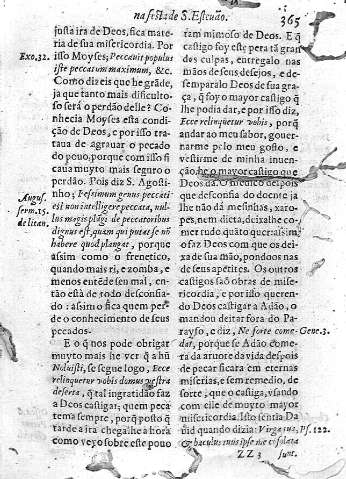 na festa de S. Esteuão.
365
justa ira de Deos, fica mate
ria de sua misericordia. Por
Exo. 32.
isso Moyses; Peccauit populus
iste peccatum maximum, &c.
Como dizeis que he grãde,
ja que tanto mais dificulto-
so será o perdão delle? Co-
nhecia Moyses esta condi-
ção de Deos, e por isso tra-
taua de agrauar o pecado
do pouo, porque com isso fi
caua muyto mais seguro o
perdão. Pois diz S. Agosti-
August.
serm. 15.
de san.
nho; Pessimum genus peccati
est non intelligere peccata, nul-
lus magis plãgi de peccatoribus
dignus est, quàm qui putat se nõ
habere quod plangat, porque
assim como o frenetico,
quando mais ri, e zomba, e
menos entẽde seu mal, en-
tão está de todo desconfia-
do: assim o fica quem per-
de o conhecimento de seus
peccados.
E o q̃ nos pode obrigar
muyto mais he ver q̃ a hũ
Noluisti, se segue logo, Ecce
relinquetur vobis domus vestra
deserta, q̃ tal ingratidão faz
a Deos castigar; quem peca
tema sempre, porq̃ posto q̃
tarde a ira chegalhe a hora
como veyo sobre este pouo
ram mimoso de Deos. E q̃
castigo soy este pera tã gran
des culpas, entregalo nas
mãos de seus desejos, e de-
semparalo Deos de sua gra-
ça, q̃ foy o mayor castigo q̃
lhe podia dar, e por isso diz,
Ecce relinquetur vobis, porq̃
andar ao meu sabor, gouer-
narme pelo meu gosto, e
vestirme de minha inuen-
ção, he o mayor castigo que
Deos dá. O medico despois
que desconfia do doente ja
lhe não dá mesinhas, xaro-
pes, nem dieta, deixalhe co-
mer tudo quãto quer: assim
o faz Deos com que os dei-
xa de sua mão, pondoos nas
de seus apetites. Os outros
castigos são obras de mise-
ricordia, e por isso queren-
do Deos castigar a Adão, o
mandou deitar fora do Pa-
rayso, e diz, Ne forte come-
Gene. 3.
dat, porque se Adão come-
ra da aruore da vida despois
de pecar ficara em eternas
miserias, e sem remedio, de
sorte, que o castiga, vsando
com elle de muyto mayor
misericordia. Isto sentia Da
uid quando dizia: Virga tua,
Ps. 122.
& baculus tuus ipse me cõsolata
ZZ 3
sunt.